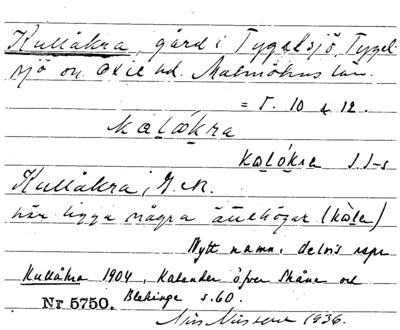 Kullåkra, gård i Tygelsjö, Tygel-
sjö sn. Oxie hd. Malmöhus län.
= T. 10 & 12.
kɑlǻkra
kɑlǻkra I.I-s
Kullåkra, G.K.
här ligga några ättehögar (kɑ̀le)
Nytt namn, delvis
Kullåkra 1904, Kalender öfver Skåne och
Blekinge s. 60.
Nr 5750.
1936.